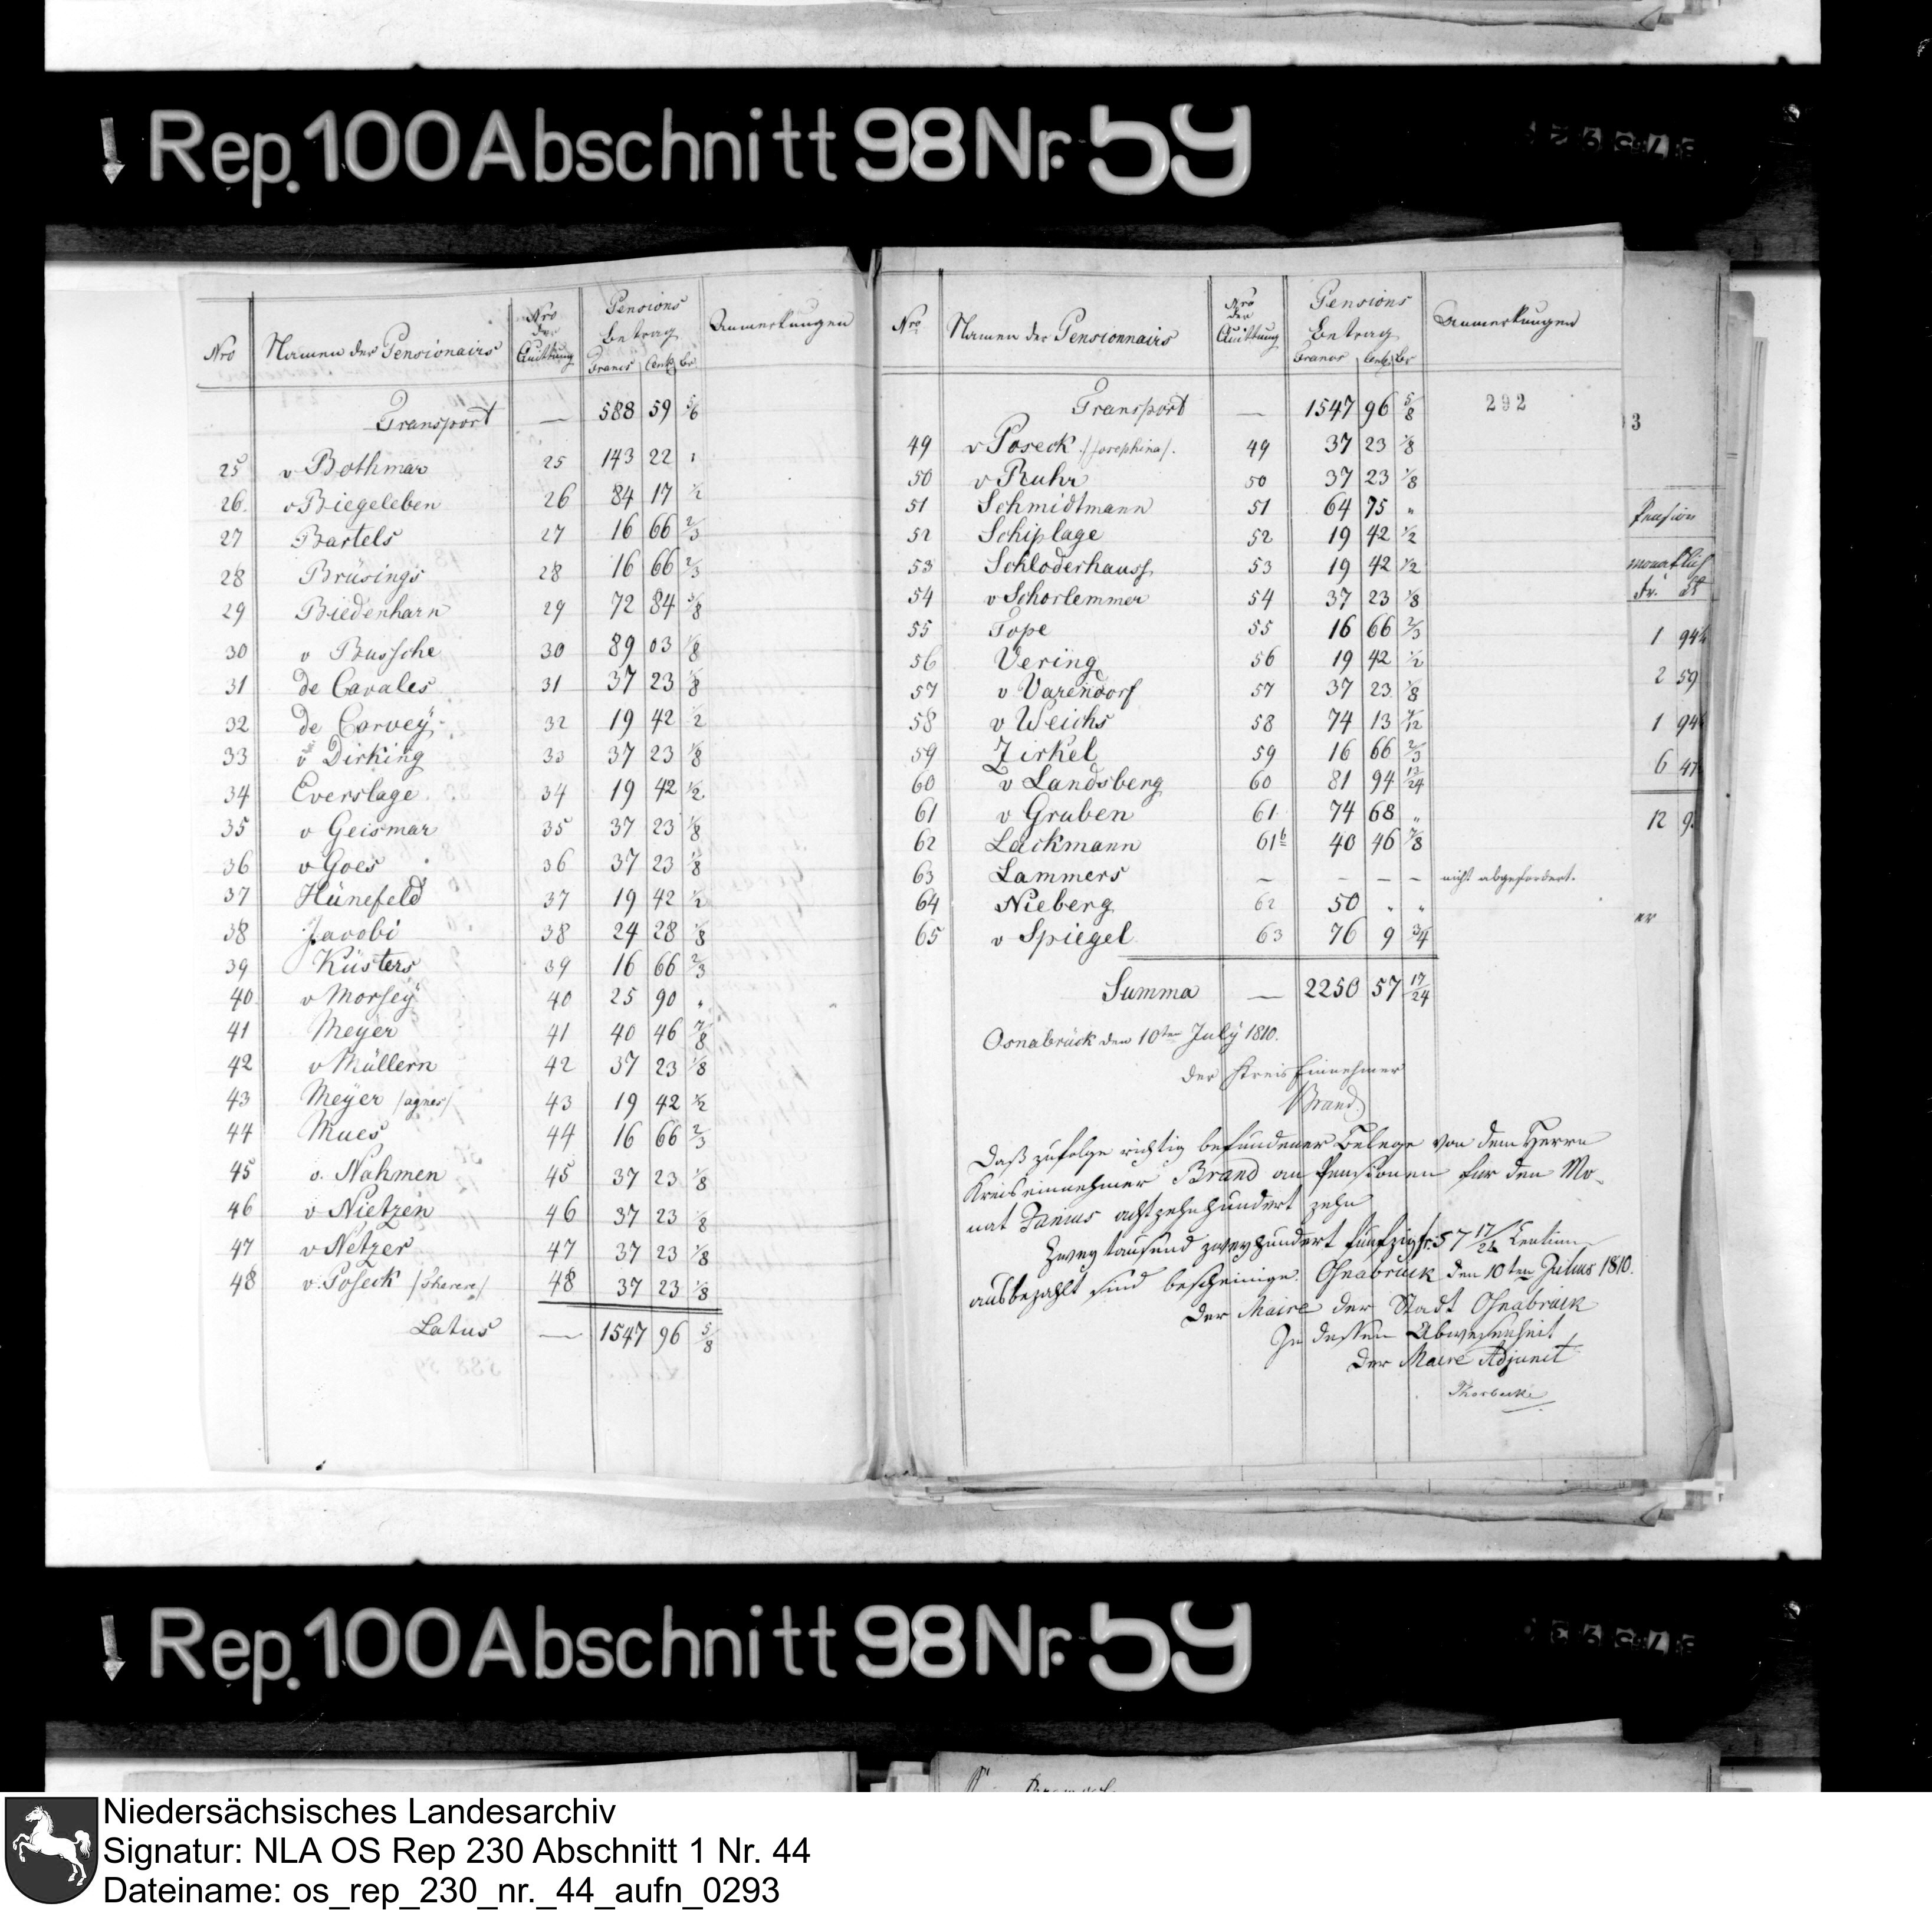 Rep. 100 Abschnitt 98 Nr. 59
Nro Namen der Pensionairs Nro der Quittung Pensions Betrag Francs Cent. Br Anmerkungen
Transport — 588 59 5/6
25 v Bothmar 25 143 22 "
26. v Biegeleben 26 84 17 1/2
27 Bartels 27 16 66 2/3
28 Brüsings 28 16 66 2/3
29 Biedenharn 29 72 84 3/8
30 v Bussche 30 89 03 1/8
31 de Cavales 31 37 23 1/8
32 de Corvey 32 19 42 1/2
33 v Dirking 33 37 23 1/8
34 Everslage 34 19 42 1/2
35 v Geismar 35 37 23 1/8
36 v Goes 36 37 23 1/8
37 Hünefeld 37 19 42 1/2
38 Jacobi 38 24 28 1/8
39 Küsters 39 16 66 2/3
40 v Morseÿ 40 25 90 "
41 Meÿer 41 40 46 7/8
42 v Müllern 42 37 23 1/8
43 Meÿer /agnes/ 43 19 42 1/2
44 Mues 44 16 66 2/3
45 v. Nahmen 45 37 23 1/8
46 v Nietzen 46 37 23 1/8
47 v Netzer 47 37 23 1/8
48 v. Poseck 48 37 23 1/8
Latus — 1547 96 5/8
Nro Namen der Pensionnairs Nro der Quittung Pensions Betrag Francs Cent. Br Anmerkungen
Transport — 1547 96 5/8 292
49 v Poseck /Josephina/. 49 37 23 1/8
50 v Ruhr 50 37 23 1/8
51 Schmidtmann 51 64 75 "
52 Schiplage 52 19 42 1/2
53 Schloderhauss 53 19 42 1/2
54 v Schorlemmer 54 37 23 1/8
55 Tope 55 16 66 2/3
56 Vering 56 19 42 1/2
57 v Varendorf 57 37 23 1/8
58 v Weichs 58 74 13 /12
59 Zirkel 59 16 66 2/3
60 v Landsberg 60 81 94 13/24
61 v Gruben 61 74 68 "
62 Lackmann 61b 40 46 7/8
63 Lammers — — — — nicht abgefordert.
64 Nieberg 62 50 " "
65 v Spiegel 63 76 9 3/4
Summa — 2250 57 17/24
Osnabrück den 10ten Julÿ 1810.
der Kreis Einnehmer
Brand
Daß zufolge richtig befundener Belege von dem Herrn
Kreiseinnehmer Brand an Pensionen für den Mo-
nat Junius achtzehnhundert zehn
Zwey tausend zweyhundert fünfzig fr. 57 17/24 Centimen
ausbezahlt sind bescheinige. Osnabrück den 10ten Julius 1810.
Der Maire der Stadt Osnabrück
In dessen Abwesenheit
Der Maire Adjunct
Thorbecke
3
Pension
monatlich
fr.
1 94
2 59
1 94
6 47
12 9
er
Rep. 100 Abschnitt 98 Nr. 59
Niedersächsisches Landesarchiv
Signatur: NLA OS Rep 230 Abschnitt 1 Nr. 44
Dateiname: os_rep_230_nr._44_aufn_0293